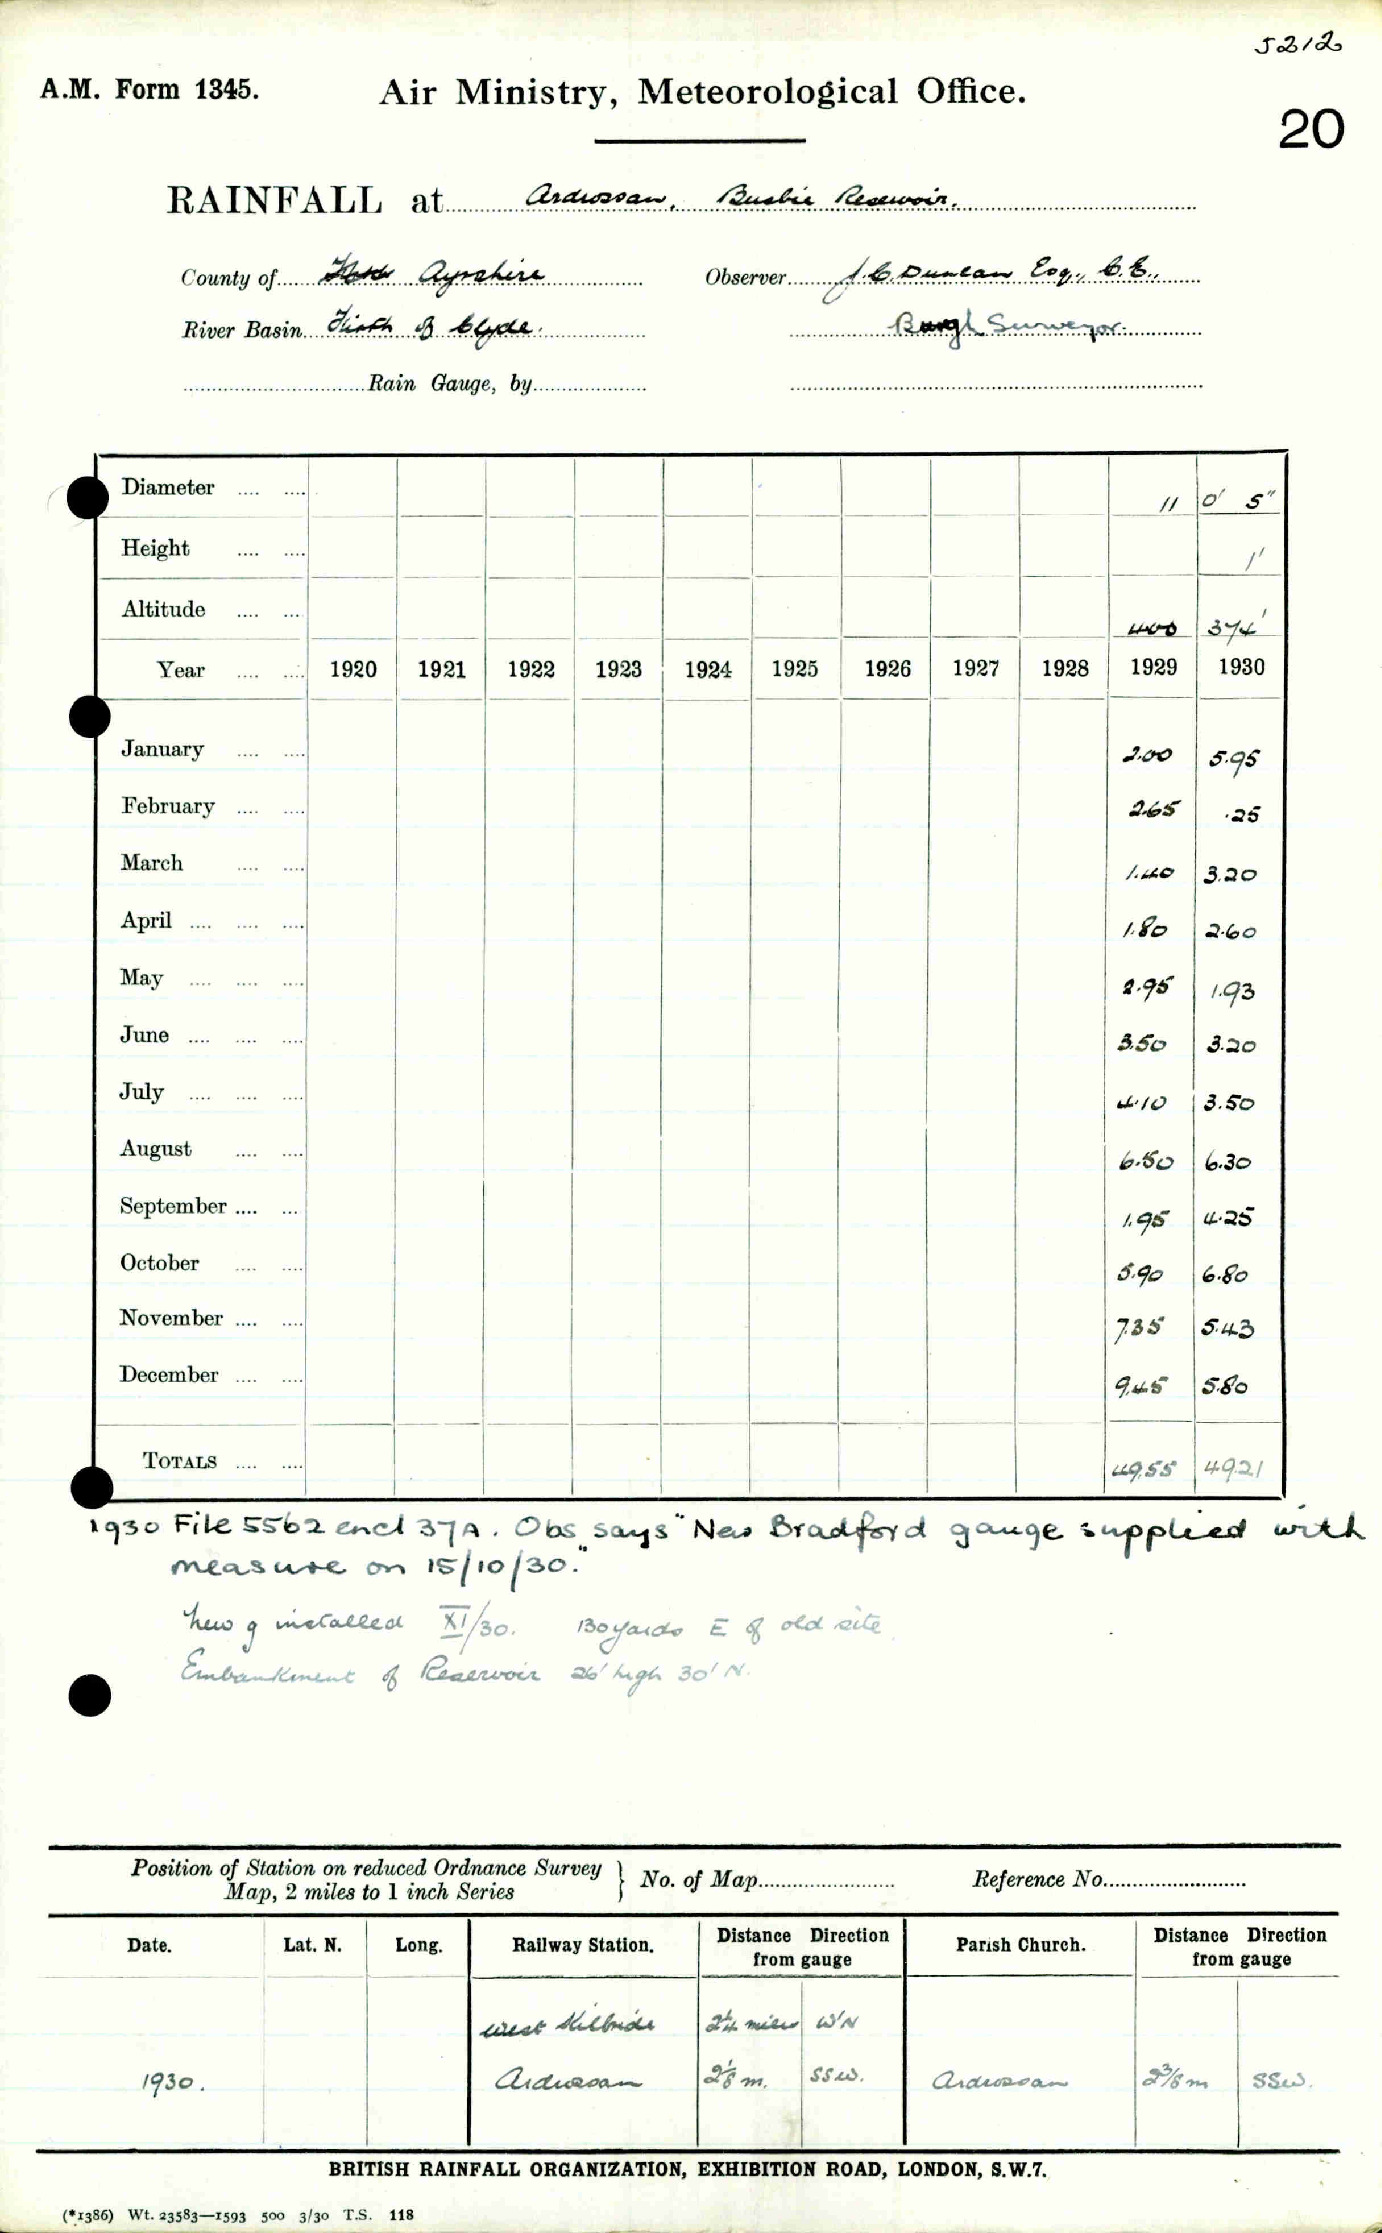 5212
A.M. Form 1345.
Air Ministry, Meteorological Office.
20
RAINFALL at Ardrossan, Busbie Reservoir.
County of Ayrshire Observer J.C. Duncan Esq., C.E.,
River Basin Firth of Clyde. Burgh Surveyor.
Rain Gauge, by
Diameter 11 0' 5"
Height 1'
Altitude 400 374'
Year 1920 1921 1922 1923 1924 1925 1926 1927 1928 1929 1930
January 2.00 5.95
February 2.65 .25
March 1.40 3.20
April 1.80 2.60
May 2.95 1.93
June 3.50 3.20
July 4.10 3.50
August 6.50 6.30
September 1.95 4.25
October 5.90 6.80
November 7.35 5.43
December 9.45 5.80
TOTALS 49.55 49.21
1930 File 5562 encl 37A. Obs says "New Bradford gauge supplied with
measure on 15/10/30."
New g installed XI/30. 130 yards E of old site
Embankment of Reservoir 26' high 30' N.
Position of Station on reduced Ordnance Survey
Map, 2 miles to 1 inch Series } No. of Map Reference No.
Date. Lat. N. Long. Railway Station. Distance Direction from gauge Parish Church. Distance Direction from gauge
West Kilbride 2¼ miles W'N
1930. Ardrossan 2⅛ m. SSW. Ardrossan 2⅜ m SSW.
BRITISH RAINFALL ORGANIZATION, EXHIBITION ROAD, LONDON, S.W.7.
(*1386) Wt. 23583—1593 500 3/30 T.S. 118